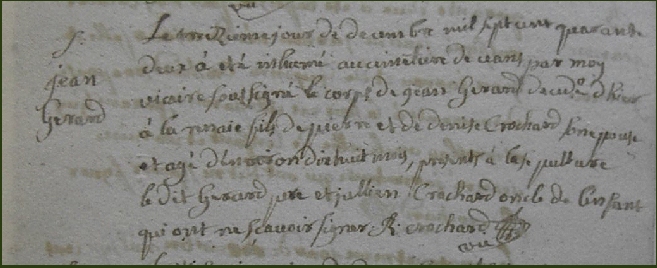 S.
jean
herard
Le treziemejour de decembre mil sept cent quarante
deux à eté inhumé au cimetiere de ceans par moy
vicaire soussigné le corps de jean herard decedé d'hier
à la fils de pierre et de denise Crochard son epouse
et agé d'environ dixhuit mois, presents à la sepulture
le dit herard pere et jullien Crochard oncle de l'enfant
qui ont ne scavoir signer R. crochard